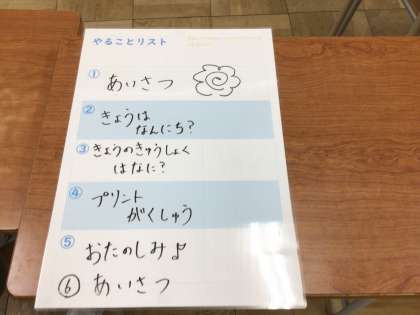 やることリスト
① あいさつ
② きょうは
なんにち?
③ きょうのきゅうしょく
はなに?
④ プリント
がくしゅう
⑤ おたのしみ♪
⑥ あいさつ